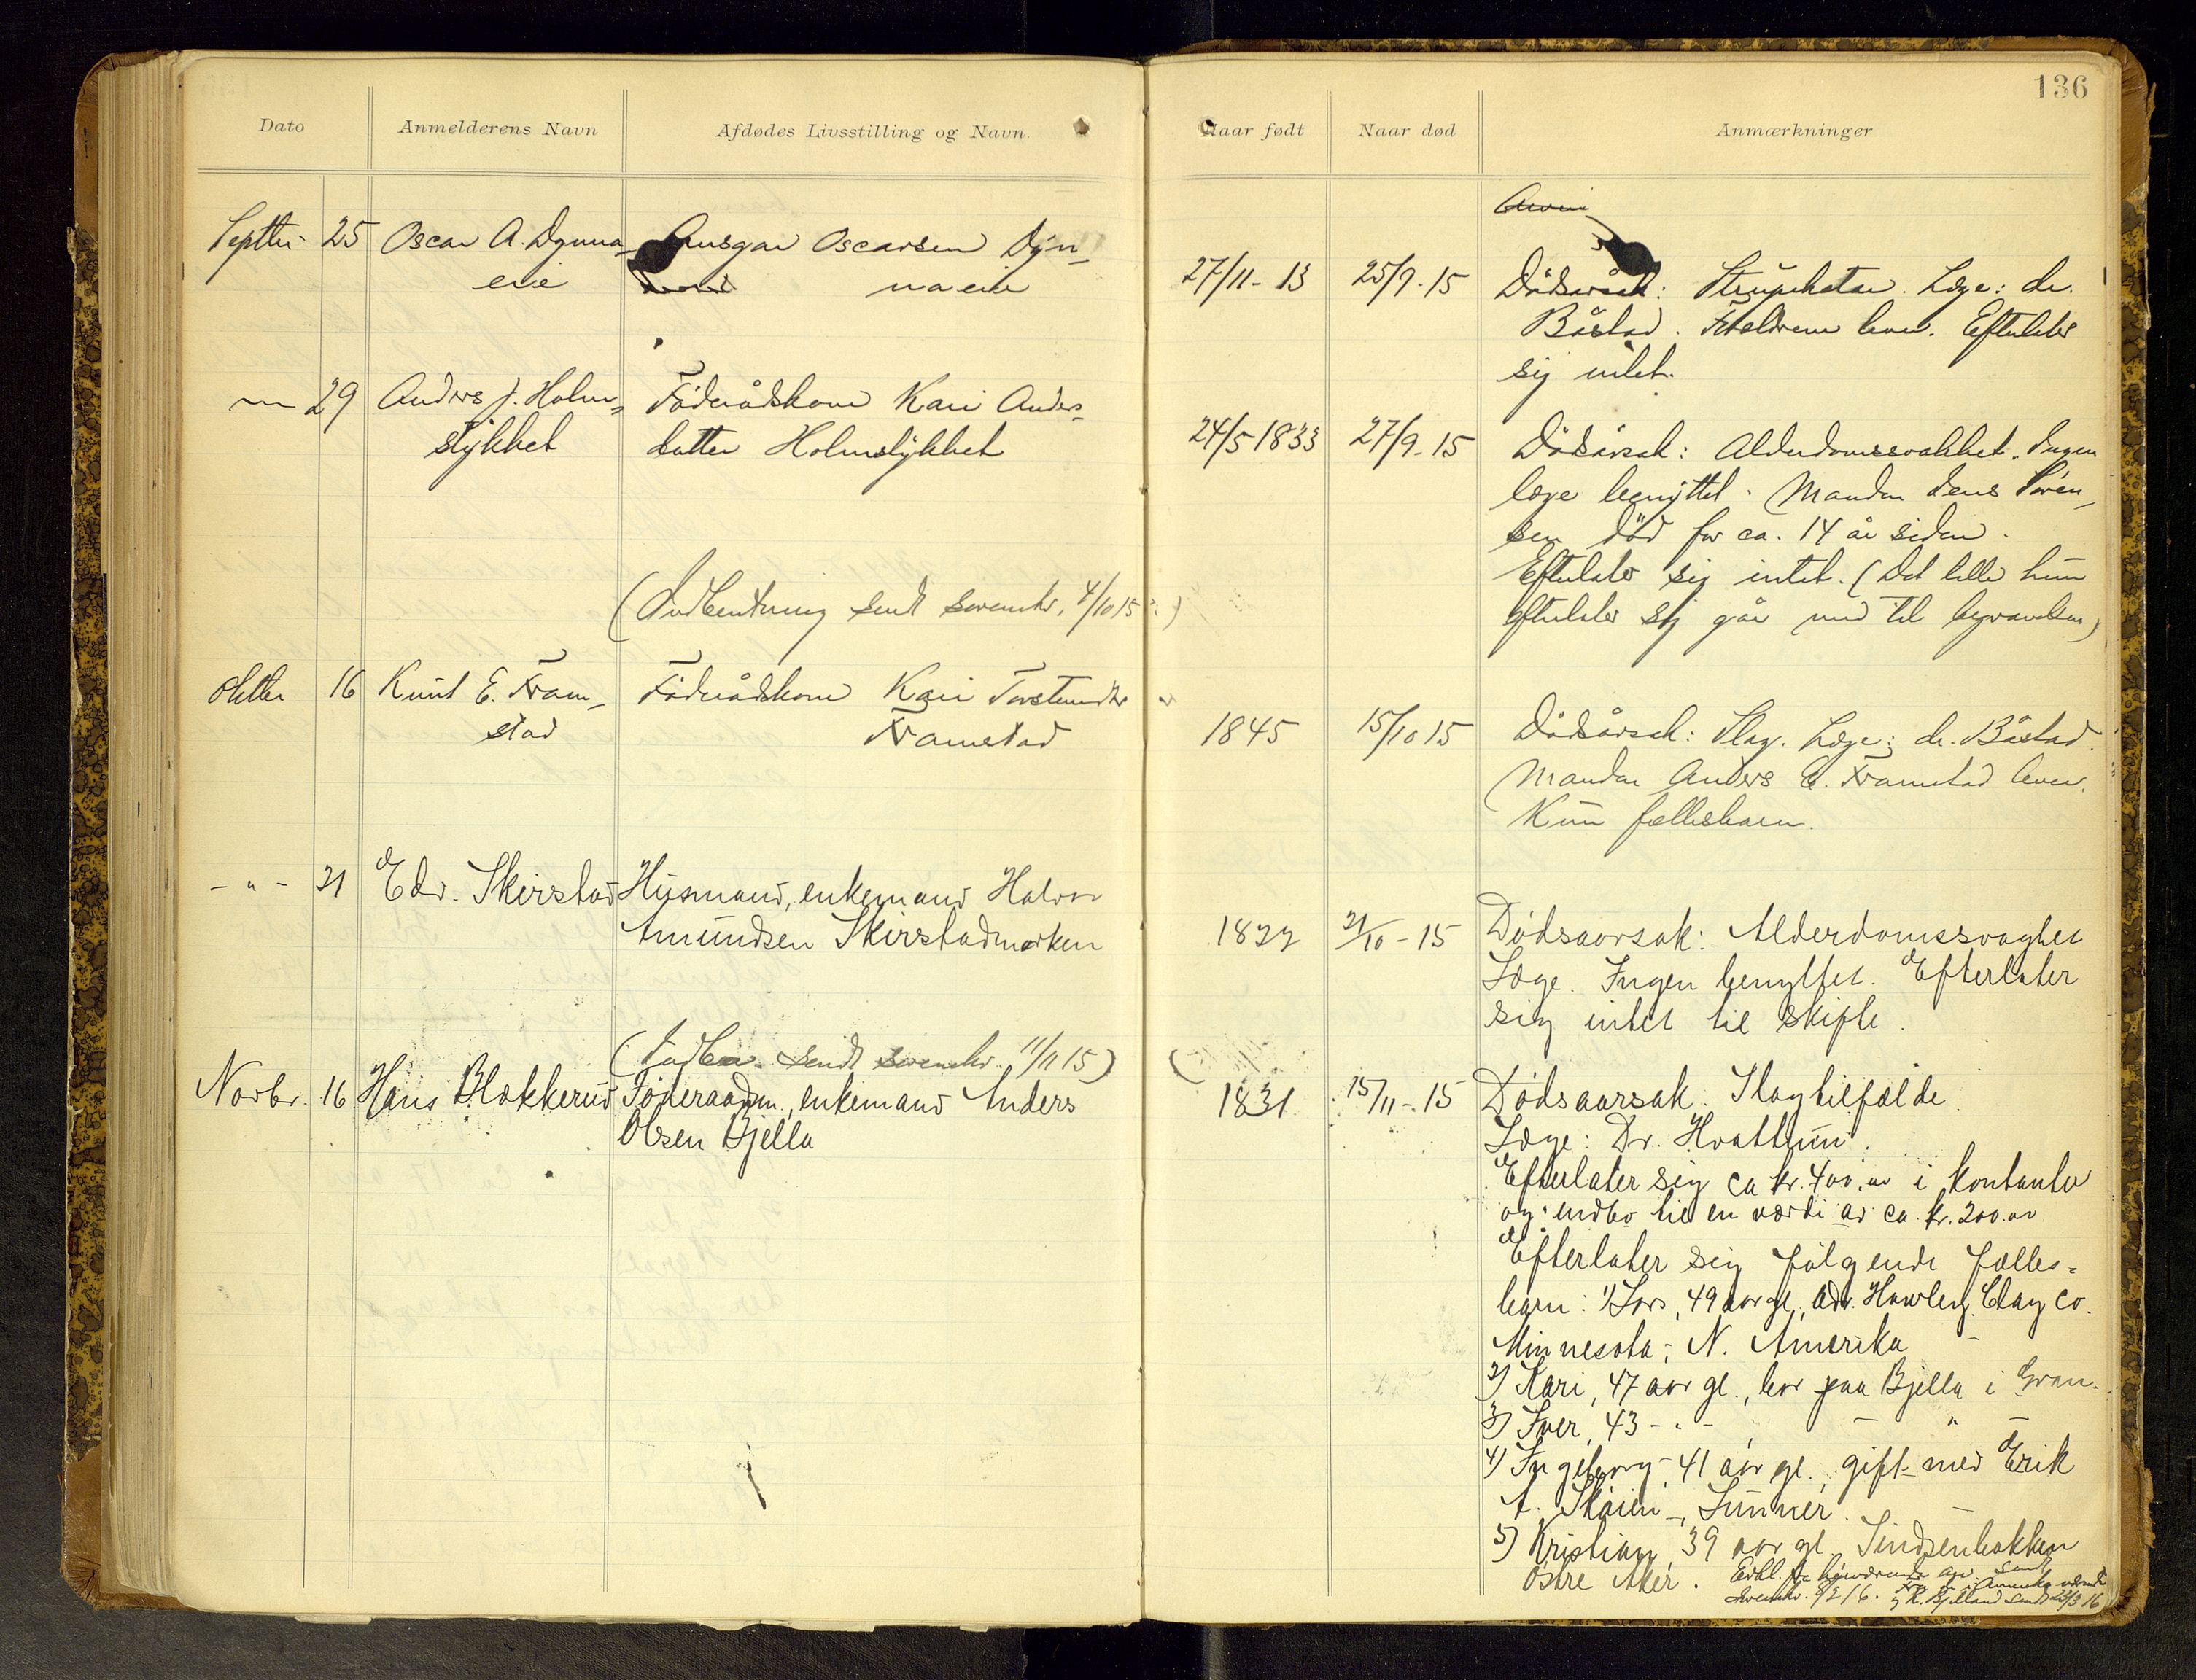 136
Dato
Anmelderens Navn
Afdødes Livsstilling og Navn.
Naar født
Naar død
Anmærkninger
Septbr 25 Oscar A. Dynna-
eie
Ansgar Oscarsen Dyn-
naeie
27/11-13
25/9-15
Dödsårsak: Strupehoste. Læge: dr.
Båstad. Foreldrene lever. Efterlater
sig intet.
29 Anders J. Holm-
stykket
Föderådskone Kari Anders-
datter Holmstykket
24/5 1833
27/9-15
Dödsårsak: Alderdomssvakhet. Ingen
læge benyttet. Manden Jens Sören-
sen död for ca. 14 år siden.
Efterlater sig intet. (Det lille hun
efterlater sig går med til begravelsen)
(Indberetning sendt sorenskr. 4/10 15.)
Oktbr 16 Knut E. Fram-
stad
Föderådskone Kari Torstensdtr
Framstad
1845
15/10 15
Dödsårsak: Slag. Læge: dr. Båstad.
Manden Anders E. Framstad lever.
Kun fællesbarn.
- " - 21 Edv. Skirstad
Husmand, enkemand Halvor
Amundsen Skirstadmarken
1822
21/10-15
Dødsaarsak: Alderdomssvaghet
Læge. Ingen benyttet. Efterlater
sig intet til skifte.
(Indber. sendt sorenskr. 11/11 15)
Novbr. 16 Hans Blokkerud
Føderaadsm., enkemand Anders
Olsen Bjella
1831
15/11-15
Dødsaarsak. Slagtilfælde.
Læge: Dr. Hvattum.
Efterlater sig ca kr. 400,00 i kontanter
og indbo til en værdi av ca. kr. 200.00
Efterlater sig følgende fælles-
barn: 1) Lars, 49 aar gl., adr. Hawley, Clay Co.
Minnesota, N. Amerika
2) Kari, 47 aar gl., bor paa Bjella i Gran.
3) Iver, 43 - " - , - " -
4) Ingeborg, 41 aar gl., gift med Erik
A. Skøien, Lunner.
5) Kristian, 39 aar gl., Sindsenbakken
Østre Aker.
sendt
sorenskr. 9/2 16.